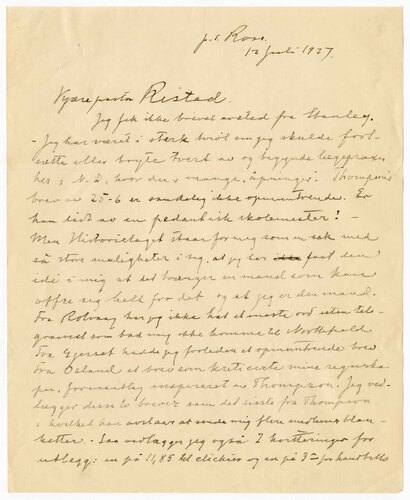 p.t. Ross.
12 Juli 1927.
Kjære pastor Ristad.
Jeg fik ikke brevet avsted fra Stanley.
- Jeg har været i sterk tvivl om jeg skulde fort-
sætte eller bryte tvert av og begynde lægepraxis
her i N.D., hvor der er mange åpninger. Thompsons
brev av 25-6 er sandelig ikke opmuntrende. Er
han lidt av en pedantisk skolemester! -
Men Historielaget staar for mig som en sak med
så store muligheter i sig, at jeg har faat den
idé i mig at det trænger en mand som kan
offre sig helt for det og at jeg er den mand.
Fra Rolvaag har jeg ikke hat et eneste ord uten tele-
grammet som bad mig ikke komme til Northfield.
Fra Gjerset hadde jeg forleden et opmuntrende brev
Fra Osland et brev som kritiserte mine regnska-
per, formentlig inspireret av Thompson. Jeg ved-
lægger disse to brever samt det sidste fra Thompson
i hvilket han avslaar at sende mig flere medlems blan-
ketter. - Saa vedlægger jeg også 2 kvitteringer for
utlegg: en på 11,85 til clichier og en på 3 for handbills